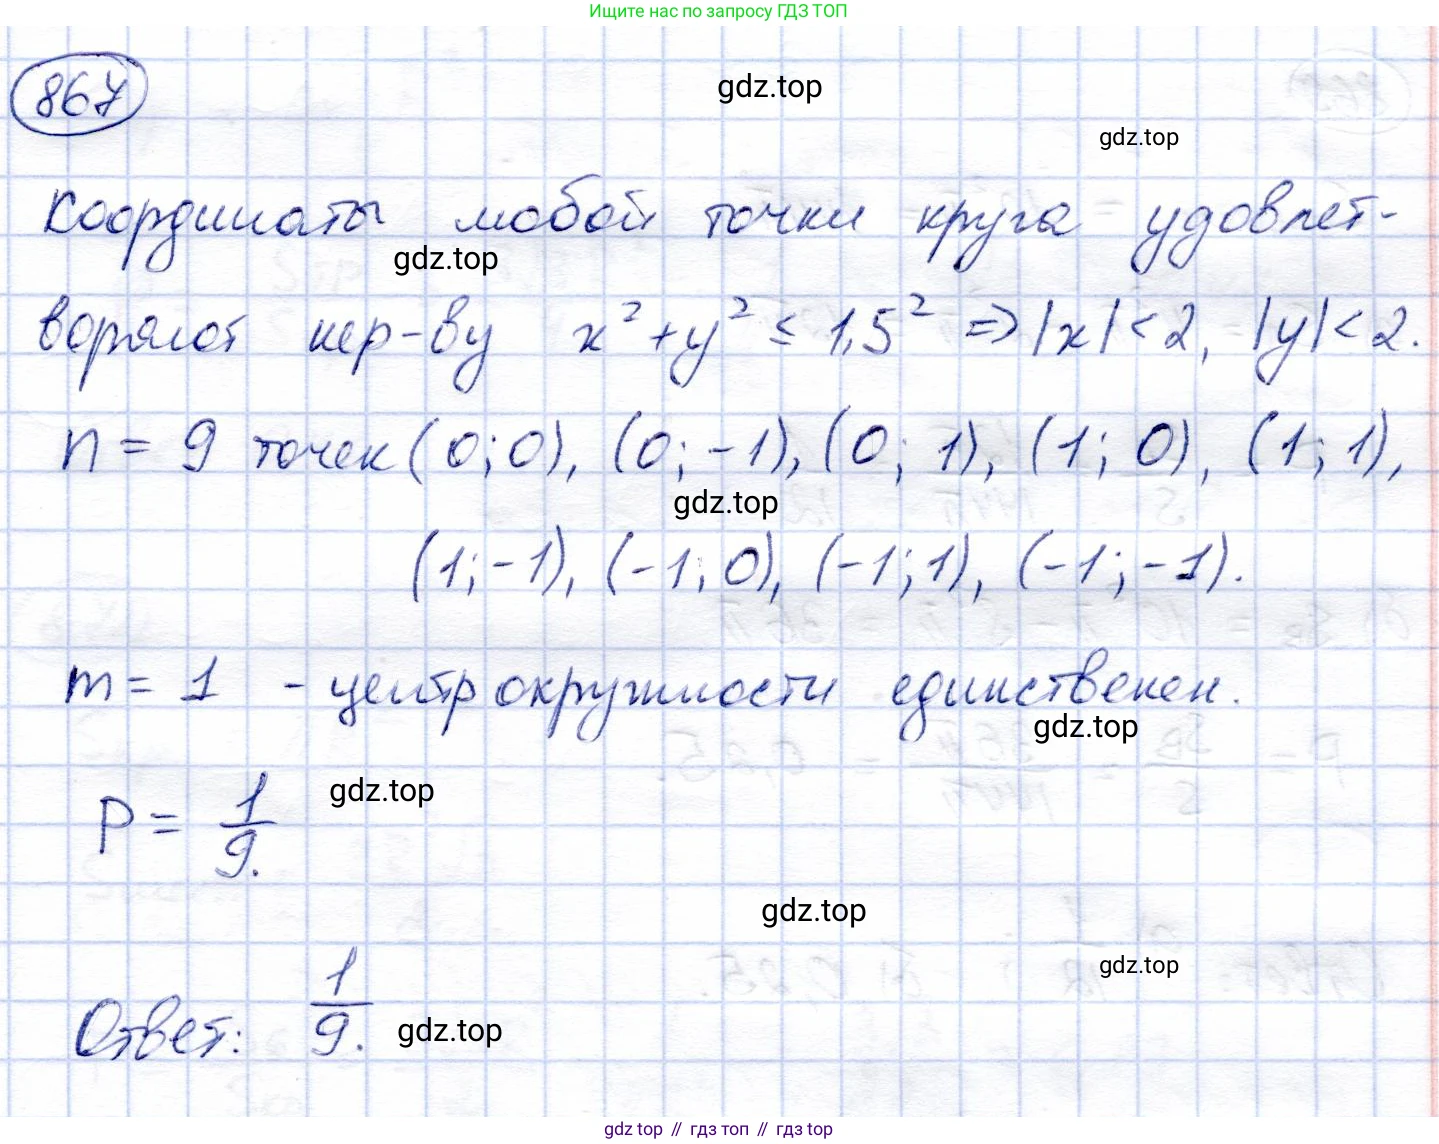 Ищите нас по запросу ГДЗ ТОП
867
gdz.top
gdz.top
Координаты любой точки круга удовлет-
gdz.top
воряют нер-ву x² + y² ≤ 1,5² => |x| < 2, |y| < 2.
n = 9 точек (0; 0), (0; -1), (0; 1), (1; 0), (1; 1),
gdz.top
(1; -1), (-1; 0), (-1; 1), (-1; -1).
m = 1 - центр окружности единственен.
gdz.top
P = 1/9.
gdz.top
gdz.top
gdz.top
Ответ: 1/9.
gdz.top
gdz top // гдз топ // гдз top